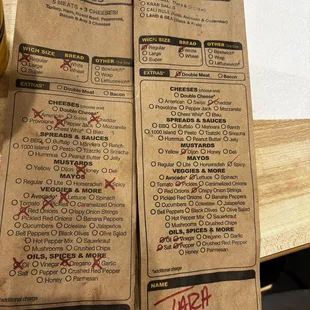 5 MEATS + 3 CHEESES!
Bacon & Any 3 Cheeses
WICH SIZE BREAD OTHER
Regular White
Large Wheat
Super
EXTRAS* Double Meat Bacon
CHEESES
Double Cheese*
American Swiss Cheddar
Provolone Pepper Jack Mozzarella
Cheez Whiz® Bleu
SPREADS & SAUCES
BBQ Buffalo Marinara Ranch
1000 Island Pesto Tzatziki Sriracha
Hummus Peanut Butter Jelly
MUSTARDS
Yellow Dijon Honey Deli
MAYOS
Regular Lite Horseradish Spicy
VEGGIES & MORE
Avocado* Lettuce Spinach
Tomato Pickles Caramelized Onions
Red Onions Crispy Onion Strings
Pickled Red Onions Banana Peppers
Cucumbers Coleslaw Jalapeños
Bell Peppers Black Olives Olive Salad
Hot Pepper Mix Sauerkraut
Mushrooms Crushed Chips
OIL, SPICES & MORE
Oil Vinegar Oregano Garlic
Salt Pepper Crushed Red Pepper
Honey Parmesan
*Additional charge
WICH SIZE BREAD OTHER
Regular White
Large Wheat
Super
EXTRAS* Double Meat Bacon
CHEESES
Double Cheese*
American Swiss Cheddar
Provolone Pepper Jack Mozzarella
Cheez Whiz® Bleu
SPREADS & SAUCES
BBQ Buffalo Marinara Ranch
1000 Island Pesto Tzatziki Sriracha
Hummus Peanut Butter Jelly
MUSTARDS
Yellow Dijon Honey Deli
MAYOS
Regular Lite Horseradish Spicy
VEGGIES & MORE
Avocado* Lettuce Spinach
Tomato Pickles Caramelized Onions
Red Onions Crispy Onion Strings
Pickled Red Onions Banana Peppers
Cucumbers Coleslaw Jalapeños
Bell Peppers Black Olives Olive Salad
Hot Pepper Mix Sauerkraut
Mushrooms Crushed Chips
OIL, SPICES & MORE
Oil Vinegar Oregano Garlic
Salt Pepper Crushed Red Pepper
Honey Parmesan
*Additional charge
NAME
TARA